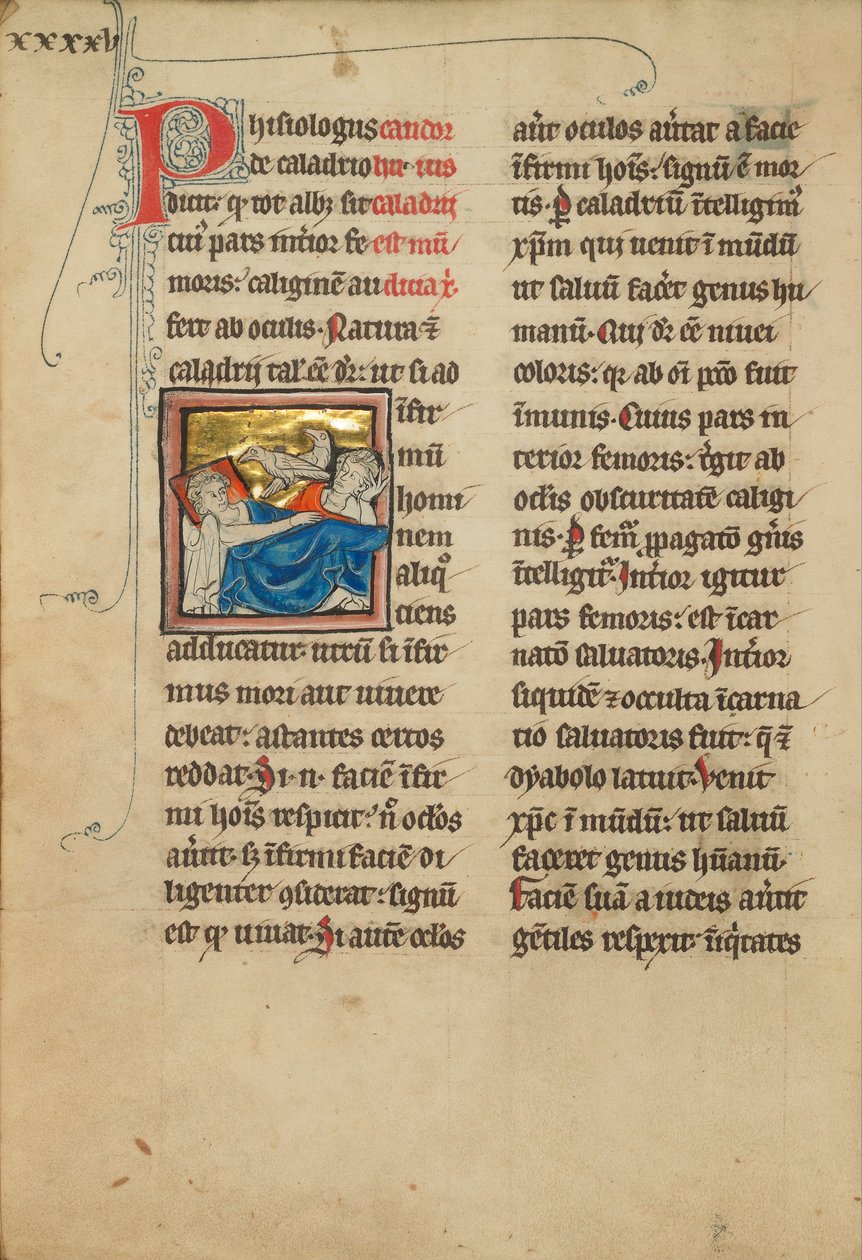 xxxxv
Phisiologus candor
de caladrio hui ius
dicit: qd tot albꝫ sit caladrij
cuiꝰ pars int̾ior fe est mū
moris: caliginē au dicia xͥ.
fert ab oculis. Natura ⁊̄
caladrij tal' eē dr̄: ut si ad
īfir
mū
homi
nem
aliqͦ
ciens
adducatur. utrū si īfir
mus mori aut uiuere
debeat: astantes certos
reddat. Si .n. faciē īfir
mi hoīs respicit: nͦ oclos
au̾tit. sꝫ īfirmi faciē di
ligenter ꝯsiderat: signū
est qd uiuat. Si autē oclos
au̾t oculos au̾tat a facie
īfirmi hoīs: signū ē mor
tis. ꝑ caladriū ītelligimꝰ
xp̄m qui uenit ī mūdū
ut saluū fac̾et genus hu
manū. Qui dr̄ eē niuei
coloris: qꝛ ab oī pcc̄o fuit
īmunis. Cuius pars in
terior femoris: t̾git ab
oclis obscuritatē caligi
nis. ꝑ femꝰ ꝓpagatō gn̾is
ītelligitᷣ. Int̾ior igitur
pars femoris: est īcar
natō saluatoris. Int̾ior
siquidē ⁊ occulta īcarna
tio saluatoris fuit: q̄ ⁊̄
dyabolo latuit. Venit
xp̄c ī mūdū: ut saluū
faceret genus hūanū.
Faciē suā a iudeis au̾tit
gētiles respexit. īiqͥtates